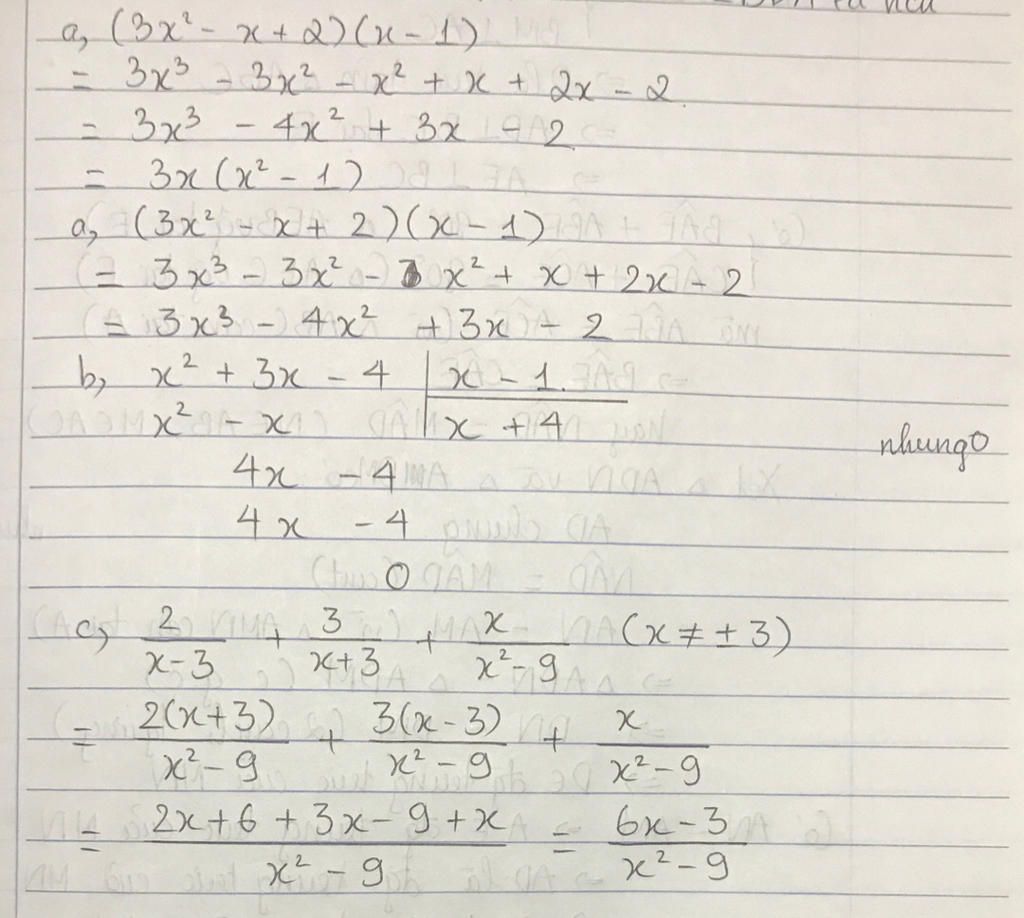 a, (3x² - x + 2)(x - 1)
= 3x³ - 3x² - x² + x + 2x - 2
= 3x³ - 4x² + 3x - 2
= 3x(x² - 1)
a, (3x² - x + 2)(x - 1)
= 3x³ - 3x² - x² + x + 2x - 2
= 3x³ - 4x² + 3x - 2
b, x² + 3x - 4 | x - 1
x² - x | x + 4
nhung
4x - 4
4x - 4
0
c, 2/(x-3) + 3/(x+3) + x/(x²-9) (x ≠ ± 3)
= 2(x+3)/(x²-9) + 3(x-3)/(x²-9) + x/(x²-9)
= (2x+6+3x-9+x)/(x²-9) = (6x-3)/(x²-9)